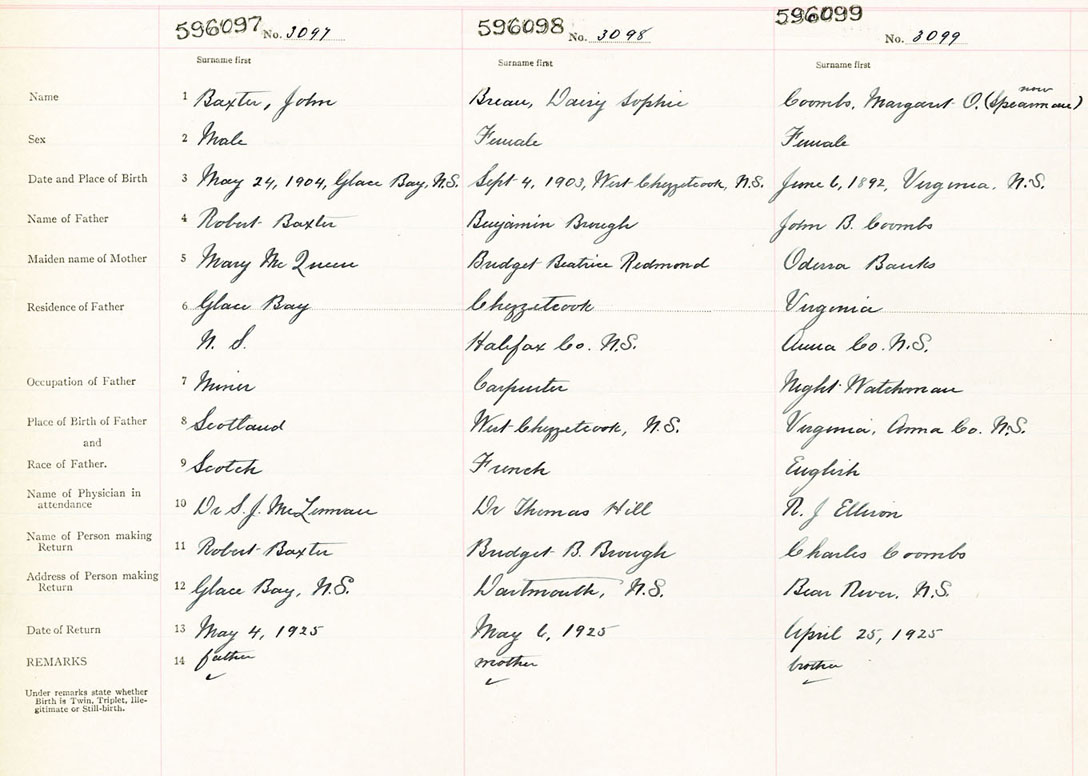 596097 No. 3097 596098 No. 3098 596099 No. 3099
Surname first Surname first Surname first
now
Name 1 Baxter, John Breau, Daisy Sophie Coombs, Margaret O. (Spearman)
Sex 2 Male Female Female
Date and Place of Birth 3 May 24, 1904, Glace Bay, N.S. Sept 4, 1903, West Chezzetcook, N.S. June 6, 1892, Virginia, N.S.
Name of Father 4 Robert Baxter Benjamin Brough John B. Coombs
Maiden name of Mother 5 Mary McQueen Bridget Beatrice Redmond Odessa Banks
Residence of Father 6 Glace Bay Chezzetcook Virginia
N. S. Halifax Co. N.S. Anna Co. N.S.
Occupation of Father 7 Miner Carpenter Night Watchman
Place of Birth of Father 8 Scotland West Chezzetcook, N.S. Virginia, Anna Co. N.S.
and
Race of Father. 9 Scotch French English
Name of Physician in
attendance 10 Dr S. J. McLennan Dr Thomas Hill R. J Ellison
Name of Person making
Return 11 Robert Baxter Bridget B. Brough Charles Coombs
Address of Person making
Return 12 Glace Bay, N.S. Dartmouth, N.S. Bear River, N.S.
Date of Return 13 May 4, 1925 May 6, 1925 April 25, 1925
REMARKS 14 father mother brother
Under remarks state whether
Birth is Twin, Triplet, Ille-
gitimate or Still-birth.